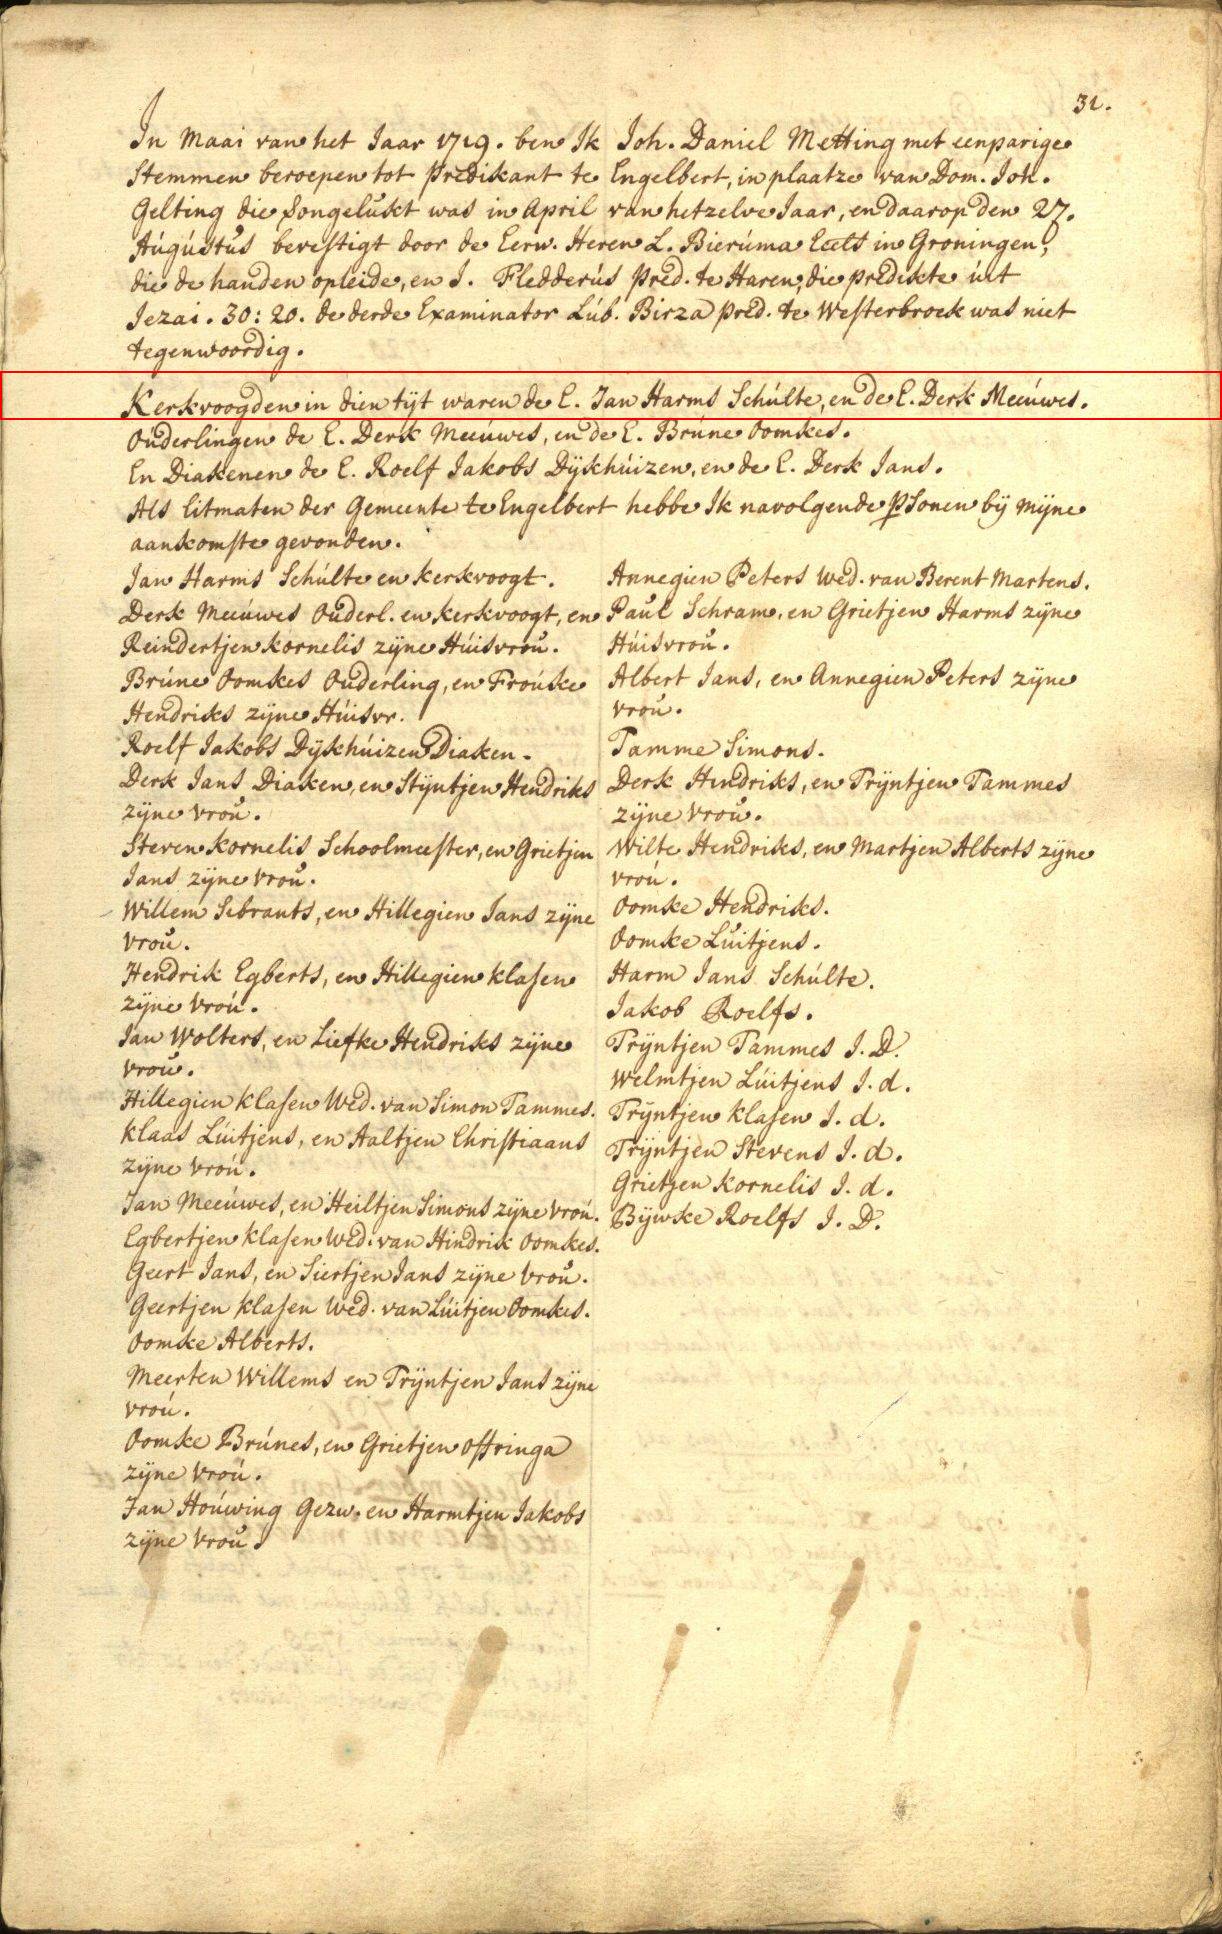 31.
In Maai van het Jaar 1719. ben Ik Joh. Daniel Metting met eenparige
Stemmen beroepen tot Predikant te Engelbert, in plaatze van Dom. Joh.
Gelting die Songelukt was in April van hetzelve Jaar, en daarop den 27.
Augustus bevestigt door de Eerw. Heren L. Bieruma Eelts in Groningen,
die de handen opleide, en J. Fledderus Pred. te Haren, die predikte uit
Jezai. 30: 20. de derde Examinator Lub. Birza Pred. te Westerbroek was niet
tegenwoordig.
Kerkvoogden in dien tijt waren de E. Jan Harms Schulte, en de E. Derk Meeuwes.
Ouderlingen de E. Derk Meeuwes, en de E. Brune Oomkes.
En Diakenen de E. Roelf Jakobs Dijkhuizen, en de E. Derk Jans.
Als Litmaten der Gemeente te Engelbert hebbe Ik navolgende PSonen bij mijne
aankomste gevonden.
Jan Harms Schulte en kerkvoogt.
Derk Meeuwes Ouderl. en kerkvoogt, en
Reindertjen Kornelis zijne Huisvrou.
Brune Oomkes Ouderling, en Frouske
Hendriks zijne Huisvr.
Roelf Jakobs Dijkhuizen Diaken.
Derk Jans Diaken, en Stijntjen Hendriks
zijne vrou.
Steven Kornelis Schoolmeester, en Grietjen
Jans zijne vrou.
Willem Sibrants, en Hillegien Jans zijne
vrou.
Hendrik Egberts, en Hillegien klasen
zijne vrou.
Jan Wolters, en Liefke Hendriks zijne
vrou.
Hillegien klasen Wed. van Simon Tammes.
Klaas Luitjens, en Aaltjen Christiaans
zijne vrou.
Jan Meeuwes, en Heiltjen Simons zijne vrou.
Egbertjen klasen Wed. van Hindrik Oomkes.
Geert Jans, en Siertjen Jans zijne vrou.
Geertjen klasen Wed. van Luitjen Oomkes.
Oomke Alberts.
Meerten Willems en Trijntjen Jans zijne
vrou.
Oomke Brunes, en Grietjen Offringa
zijne vrou.
Jan Houwing Gezw. en Harmtjen Jakobs
zijne vrou.
Annegien Peters Wed. van Berent Martens.
Paul Schram, en Grietjen Harms zijne
Huisvrou.
Albert Jans, en Annegien Peters zijne
vrou.
Tamme Simons.
Derk Hindriks, en Trijntjen Tammes
zijne vrou.
Wilte Hendriks, en Martjen Alberts zijne
vrou.
Oomke Hendriks.
Oomke Luitjens.
Harm Jans Schulte.
Jakob Roelfs.
Trijntjen Tammes J. D.
Welmtjen Luitjens J. d.
Trijntjen klasen J. d.
Trijntjen Stevens J. d.
Grietjen Kornelis J. d.
Bijwke Roelfs J. D.